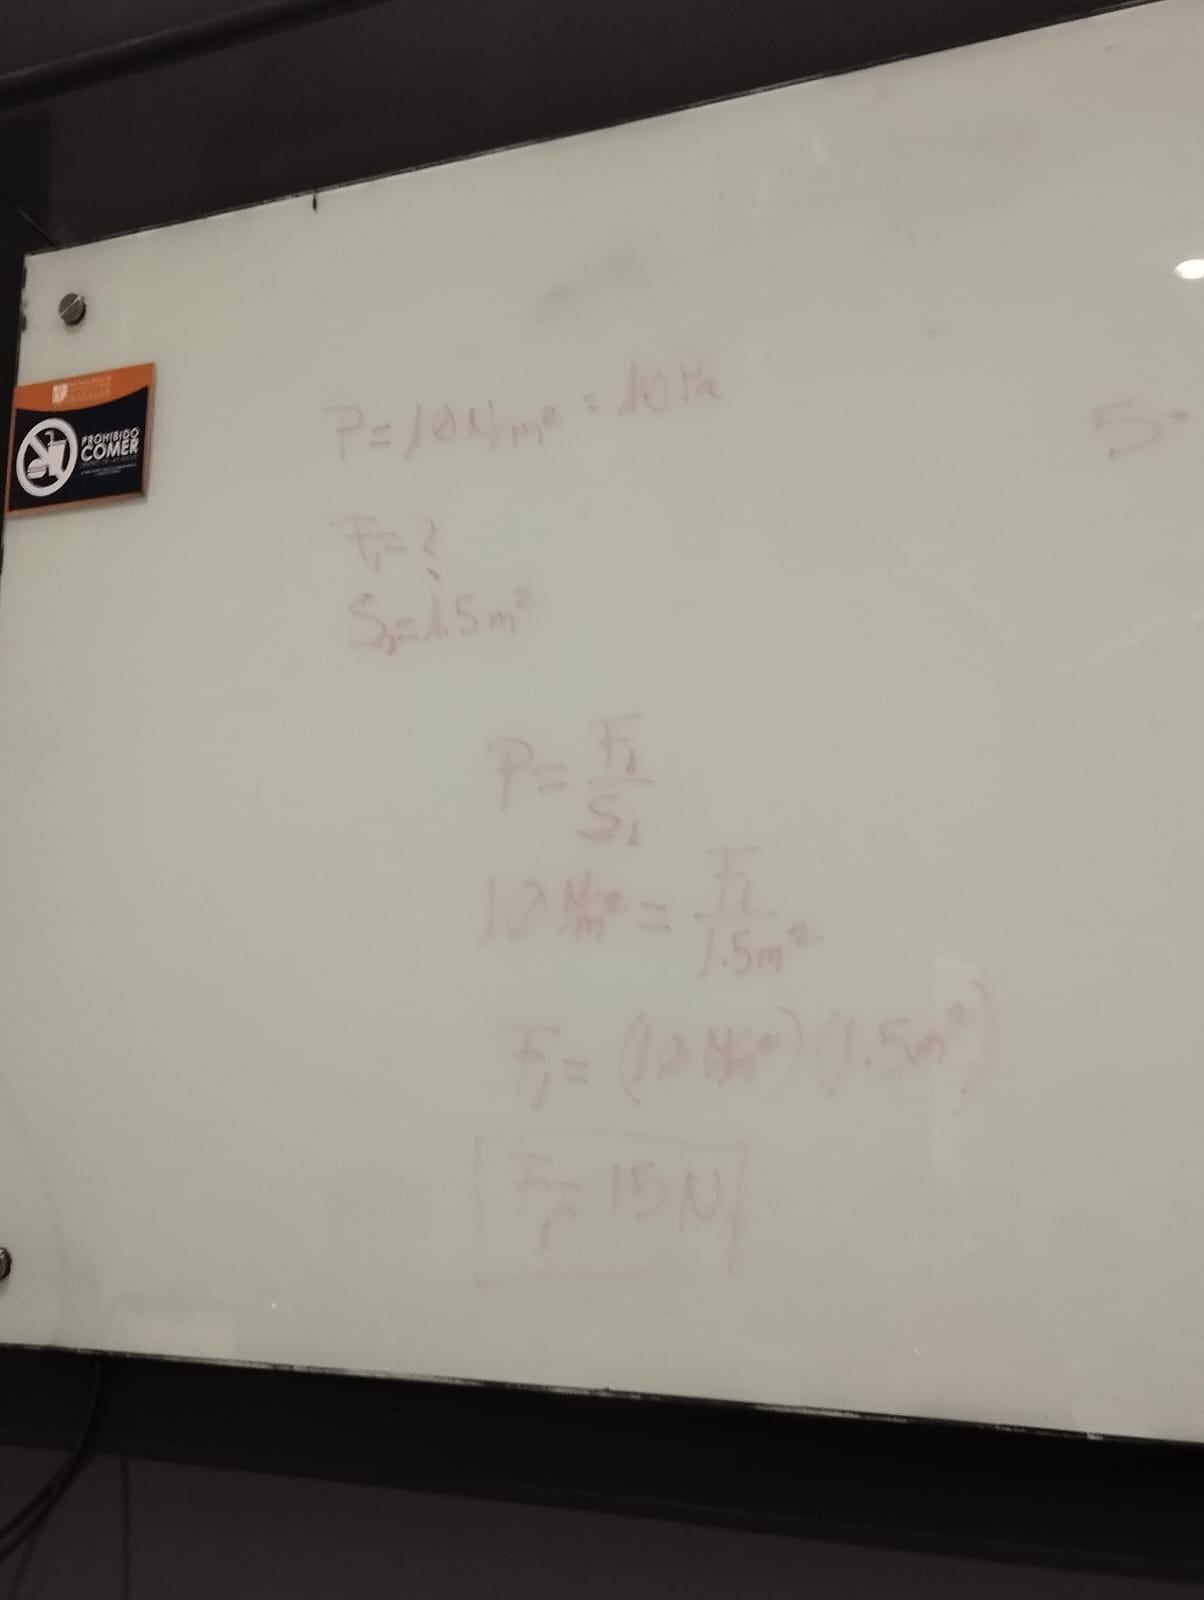 PROHIBIDO
COMER
P = 10 N/m² = 10 Pa
F₁ = ?
S₁ = 1.5 m²
P = F₁/S₁
10 N/m² = F₁/1.5m²
F₁ = (10 N/m²)(1.5m²)
F₁ = 15 N
5